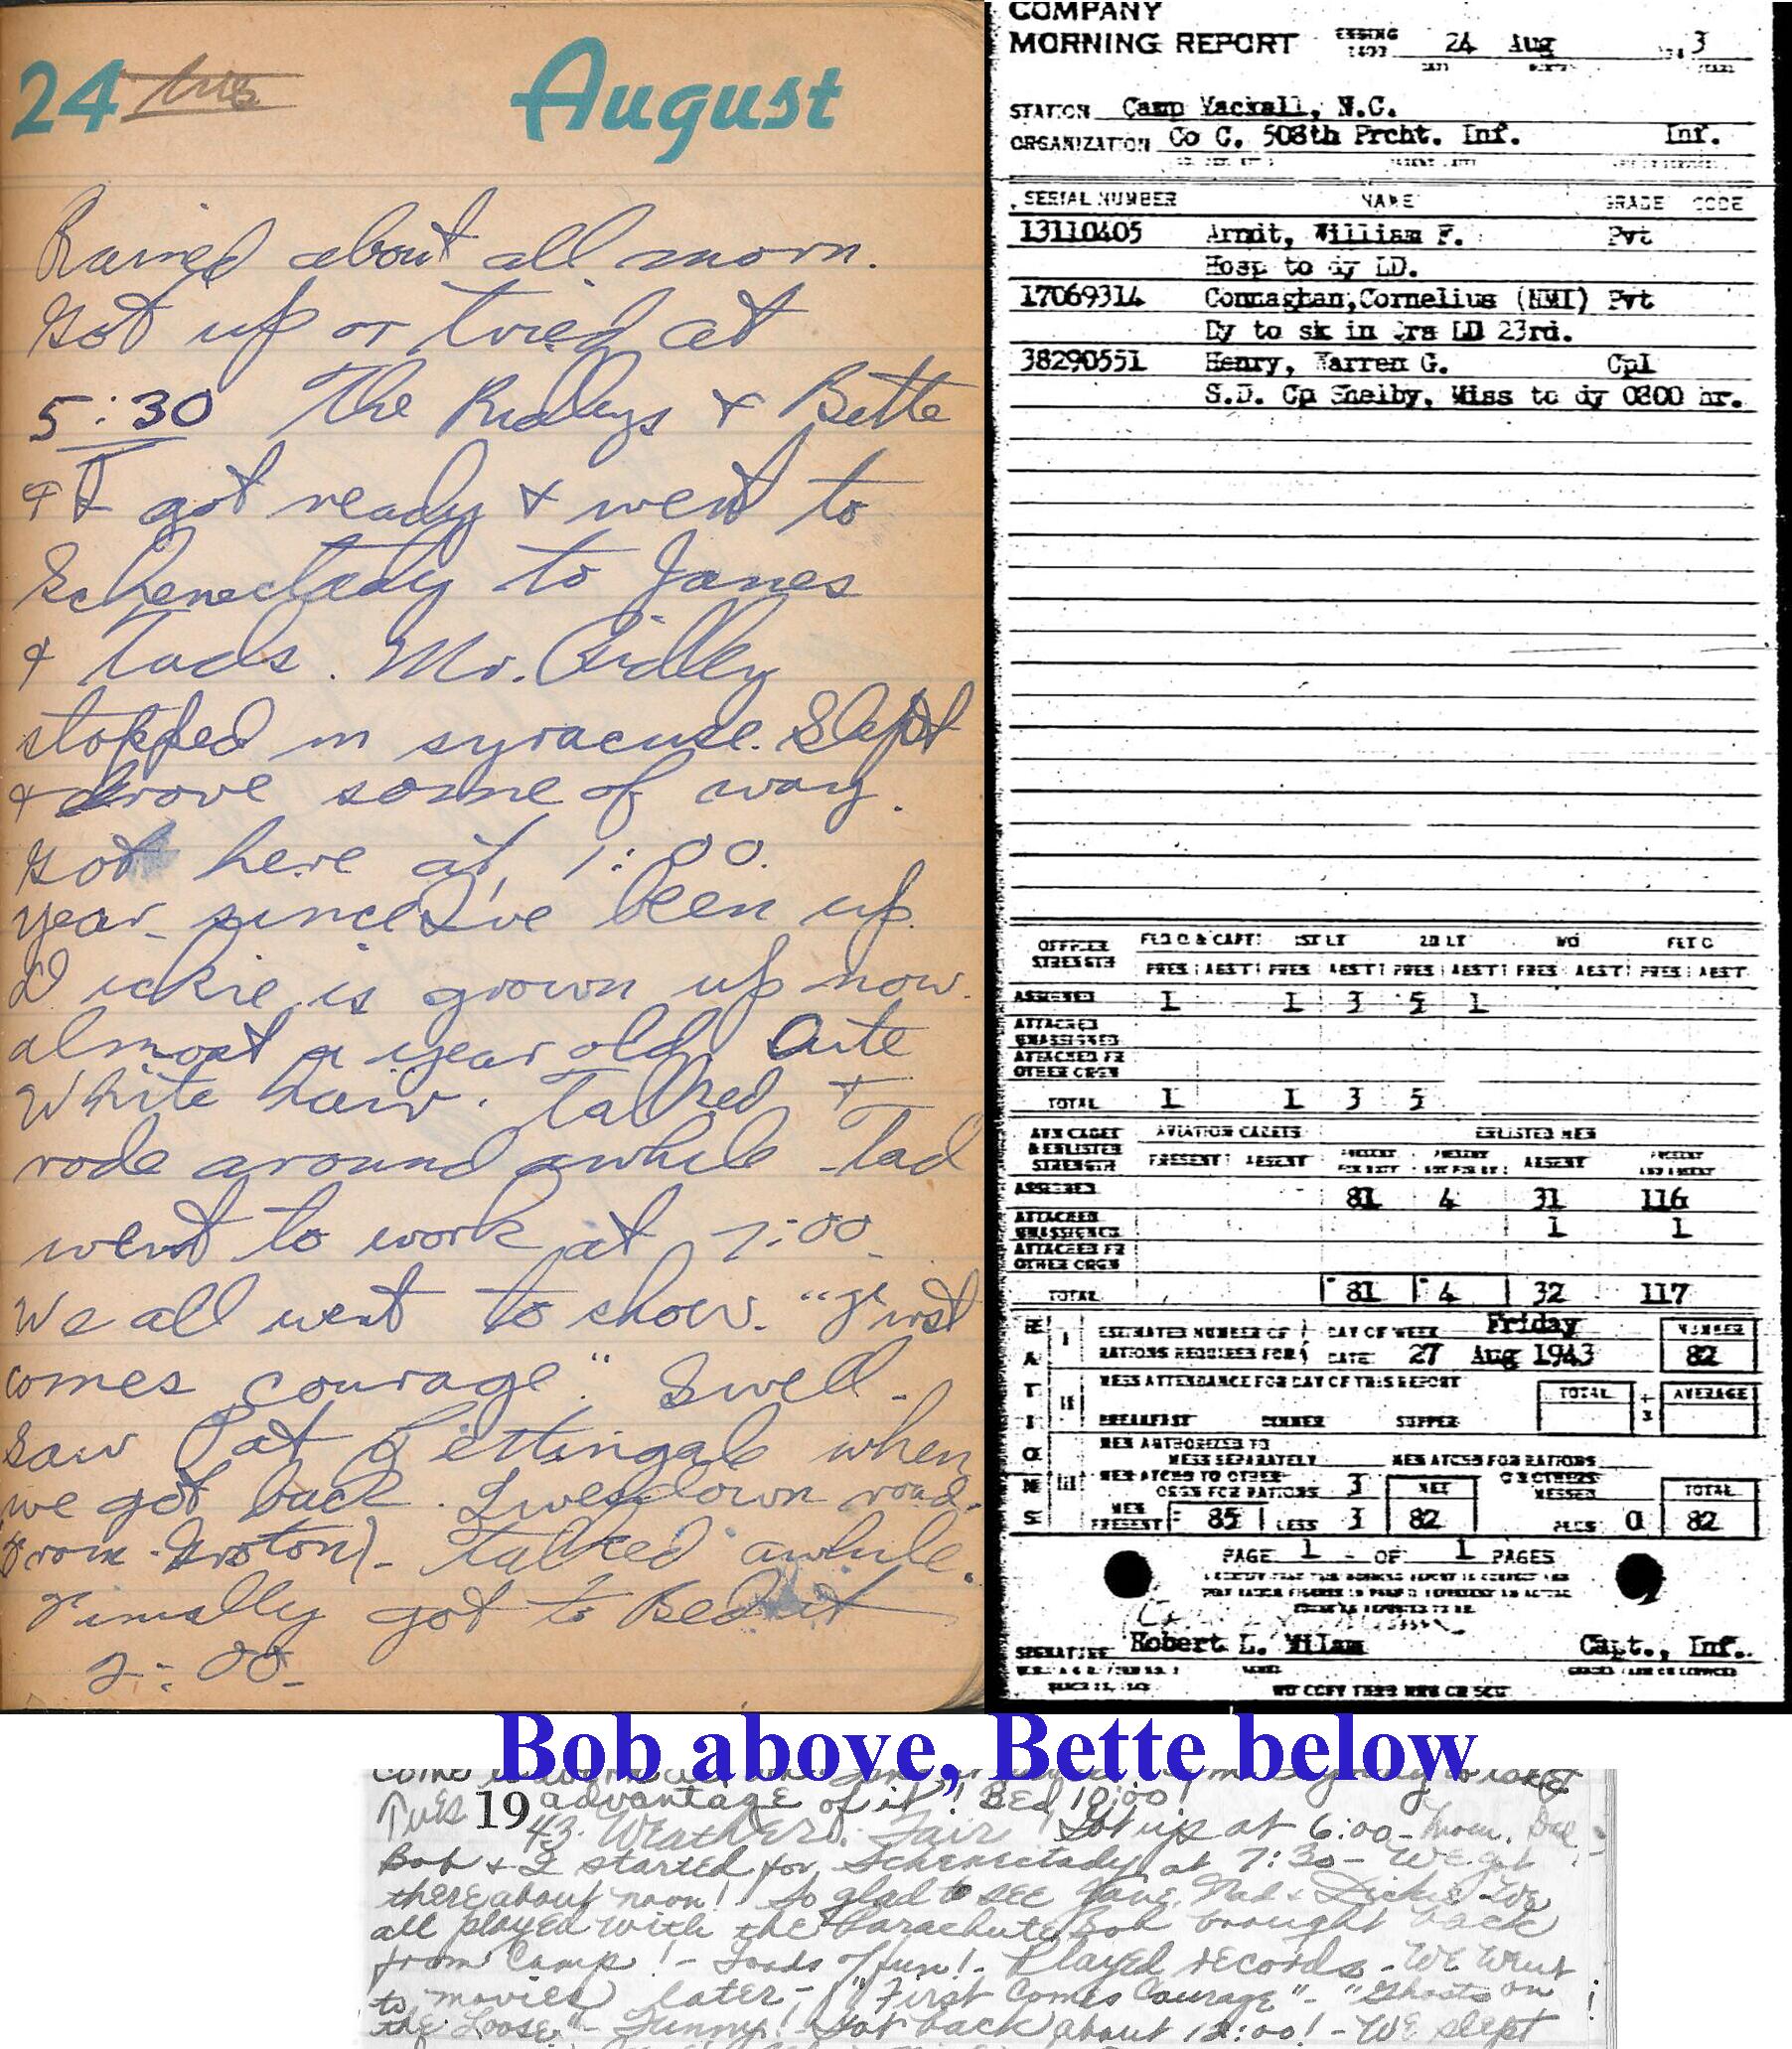 24 Tues August
Rained about all morn.
Got up or tried at
5:30 The Ridleys & Bette
& I got ready & went to
Schenectady to Janes
& Tads. Mr. Ridley
stopped in syracuse. Slept
& drove some of way.
Got here at 1:00.
year since I've been up.
Dickie is grown up now.
almost a year old. Cute
White hair. Talked &
rode around awhile Tad
went to work at 7:00.
We all went to show. "First
comes courage". Swell.
Saw Pat when
we got back. Lives down road
from Groton) - Talked awhile.
Finally got to Bed at
2:00-
COMPANY
MORNING REPORT ENDING 24 Aug 3
STATION Camp Mackall, N.C.
ORGANIZATION Co C. 508th Prcht. Inf. Inf.
SERIAL NUMBER NAME GRADE CODE
13110405 Arndt, William F. Pvt
Hosp to dy LD.
17069314 Connaghan, Cornelius (NMI) Pvt
Dy to sk in qrs LD 23rd.
38290551 Henry, Warren G. Cpl
S.D. Cp Shelby, Miss to dy 0800 hr.
OFFICER STRENGTH FLD O & CAPT 1ST LT 2D LT WO FLT O
PRES ABST PRES ABST PRES ABST PRES ABST PRES ABST
ASSIGNED 1 1 3 5 1
ATTACHED UNASSIGNED
ATTACHED FR OTHER ORGN
TOTAL 1 1 3 5
AVN CADET & ENLISTED STRENGTH AVIATION CADETS ENLISTED MEN
PRESENT ABSENT PRESENT FOR DUTY PRESENT NOT FOR DY ABSENT PRESENT AND ABSENT
ASSIGNED 81 4 31 116
ATTACHED UNASSIGNED 1 1
ATTACHED FR OTHER ORGN
TOTAL 81 4 32 117
RATIONS
I ESTIMATED NUMBER OF RATIONS REQUIRED FOR DAY OF WEEK Friday NUMBER
DATE 27 Aug 1943 82
II MESS ATTENDANCE FOR DAY OF THIS REPORT TOTAL ÷ 3 AVERAGE
BREAKFAST DINNER SUPPER
III MEN AUTHORIZED TO MESS SEPARATELY MEN ATCHD FOR RATIONS
MEN ATCHD TO OTHER ORGS FOR RATIONS 3 NET MESSED TOTAL
MEN PRESENT 85 LESS 3 82 PLUS 0 82
PAGE 1 OF 1 PAGES
SIGNATURE Robert L. Milam Capt., Inf.
Bob above, Bette below
advantage of it! Bed 10:00!
Tues 1943. Weather: Fair Got up at 6:00- Mom. Dad
Bob & I started for Schenectady at 7:30- We got
there about noon! So glad to see Jane, Tad & Dickie- We
all played with the Parachute Bob brought back
from Camp! - Loads of fun! - Played records - We Went
to movies later - "First Comes Courage" - "Ghosts on
the Loose" - Funny! Got back about 12:00! - We slept